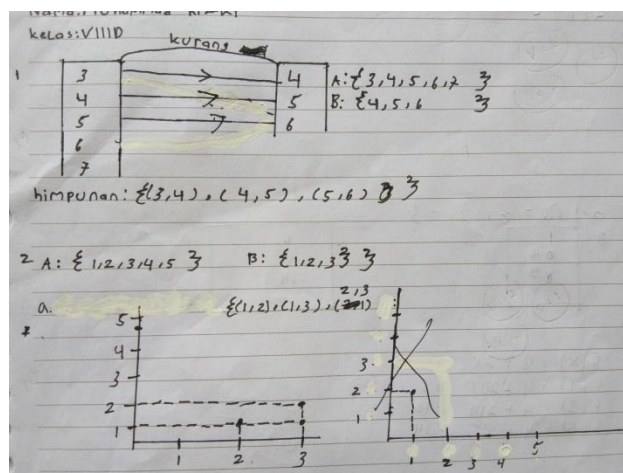 kelas: VIIID
kurang
1
3 4 A: {3,4,5,6,7 }
4 5 B: {4,5,6 }
5 6
6
7
himpunan: {(3,4), (4,5), (5,6) }
2 A: {1,2,3,4,5 } B: {1,2,3} }
a. {(1,2), (1,3), (2,3
5
4
3
2
1
1 2 3
3
2
1
1 2 3 4 5